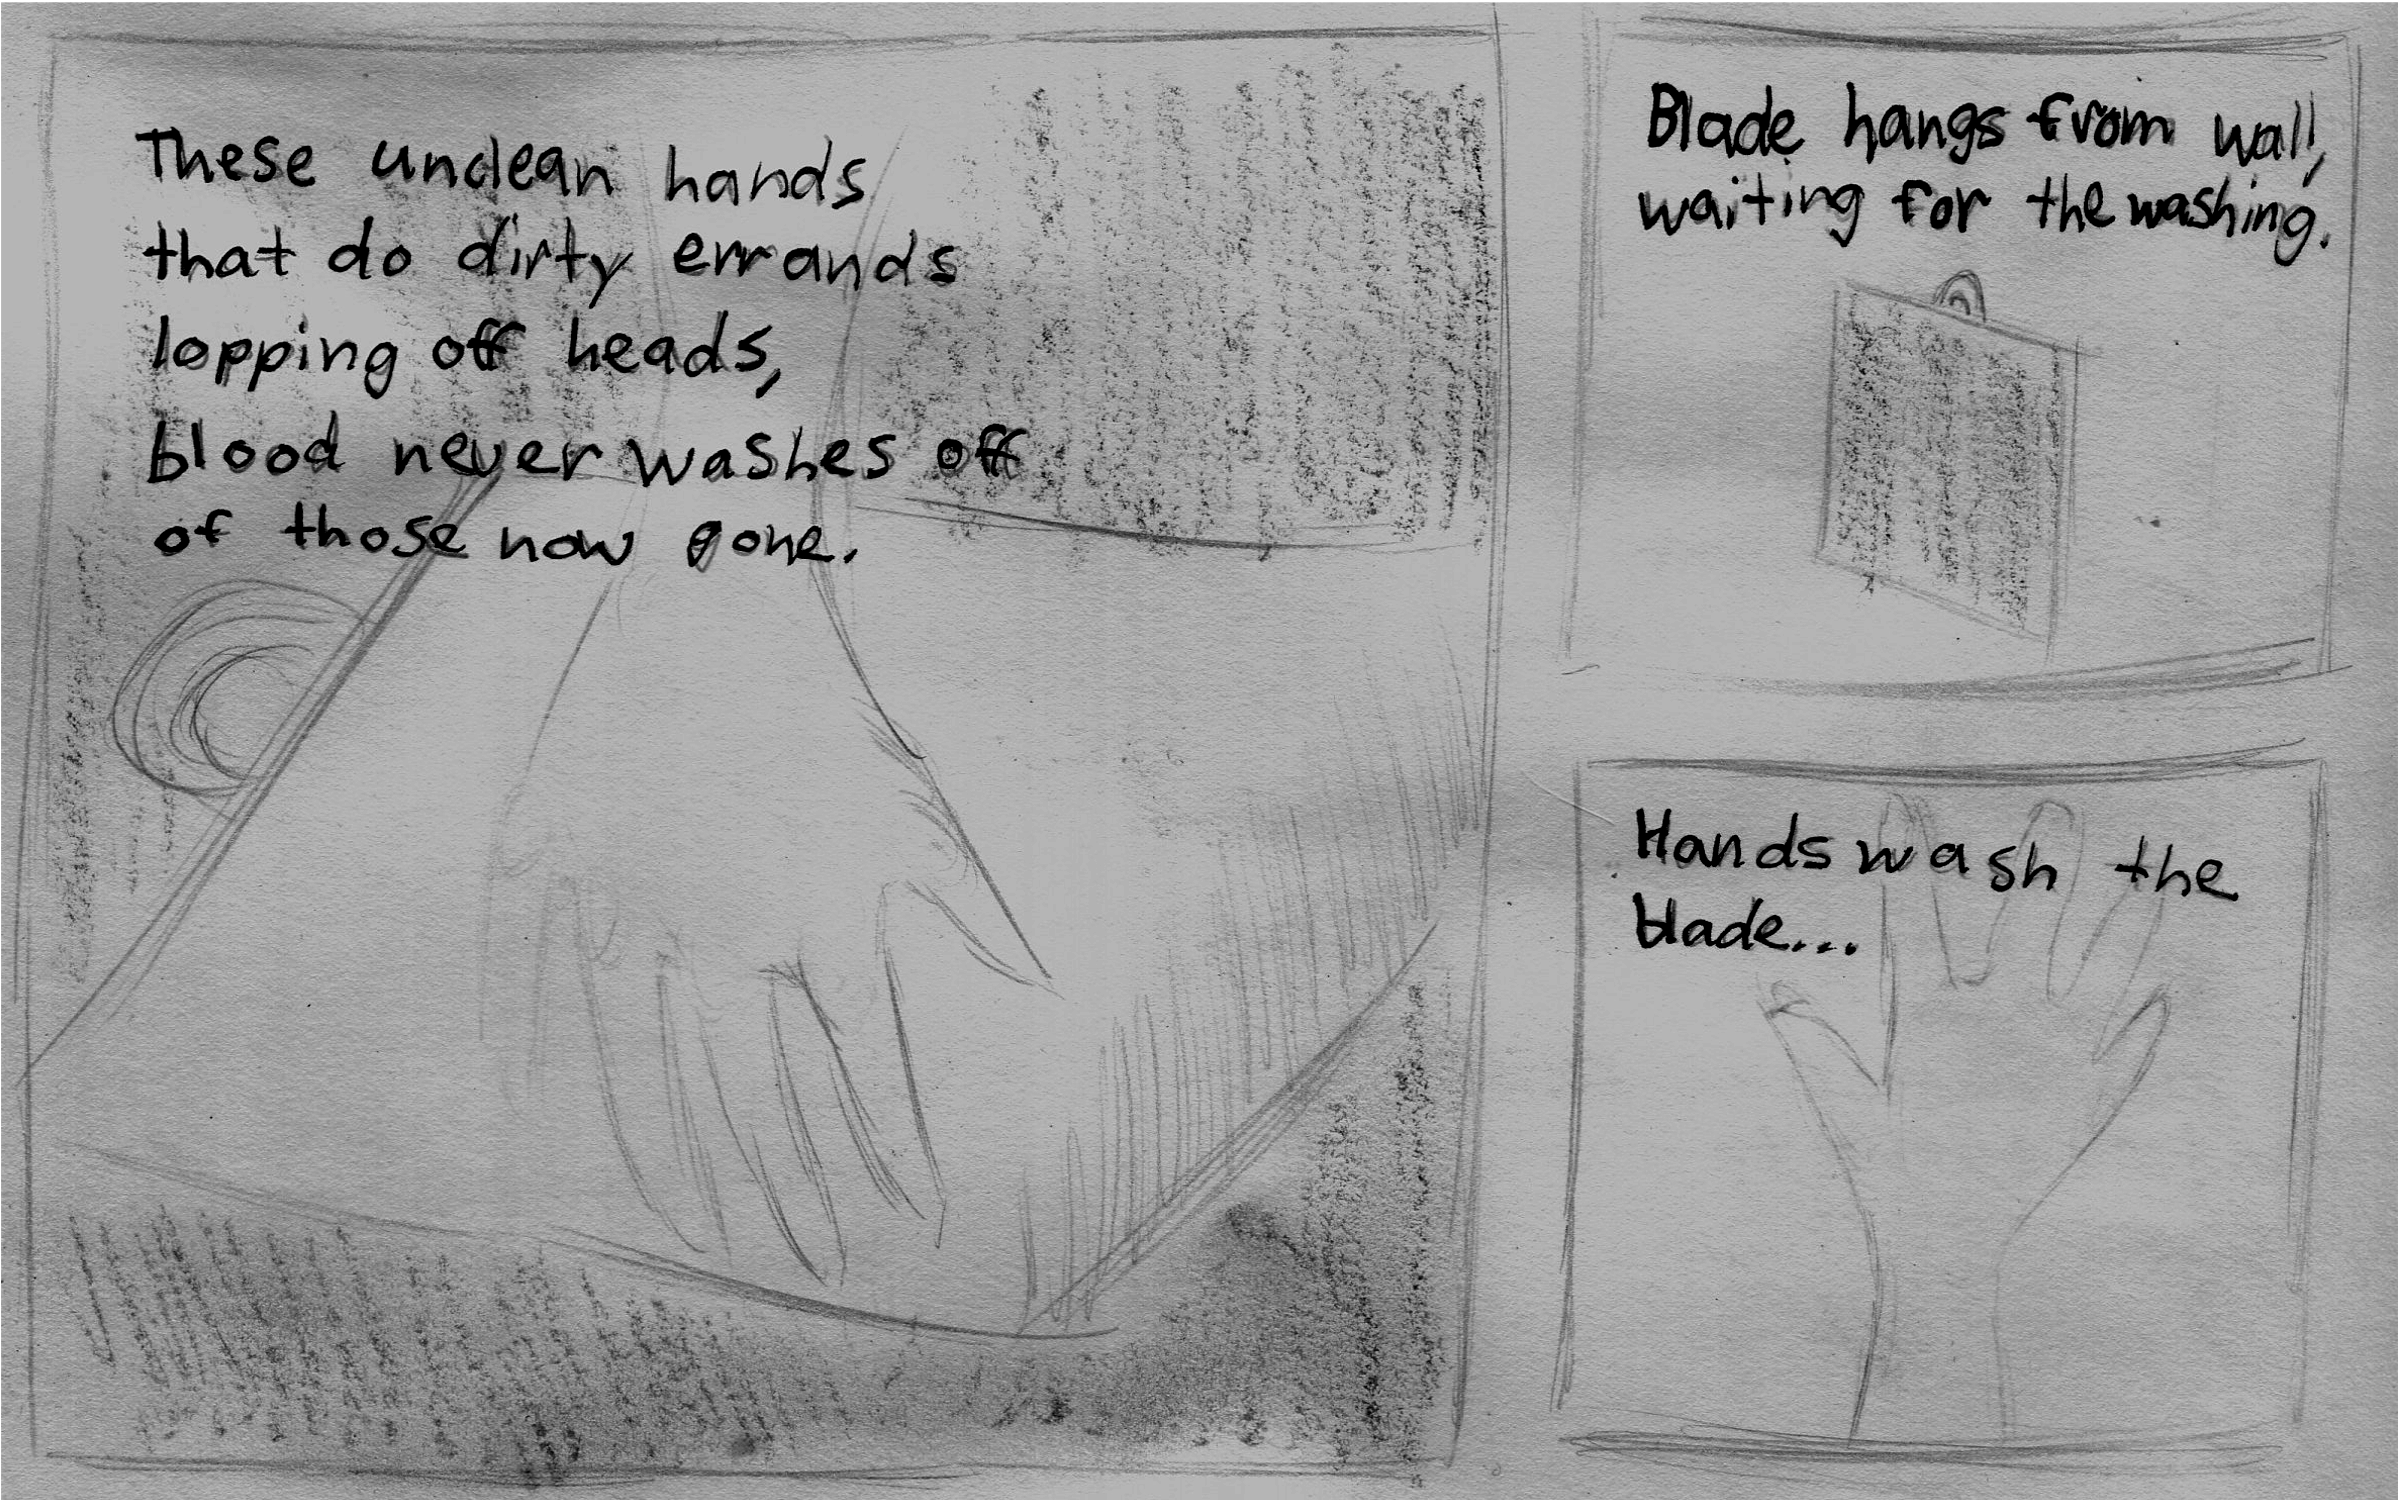 These unclean hands
that do dirty errands
lopping off heads,
blood never washes off
of those now gone.
Blade hangs from wall,
waiting for the washing.
Hands wash the
blade...